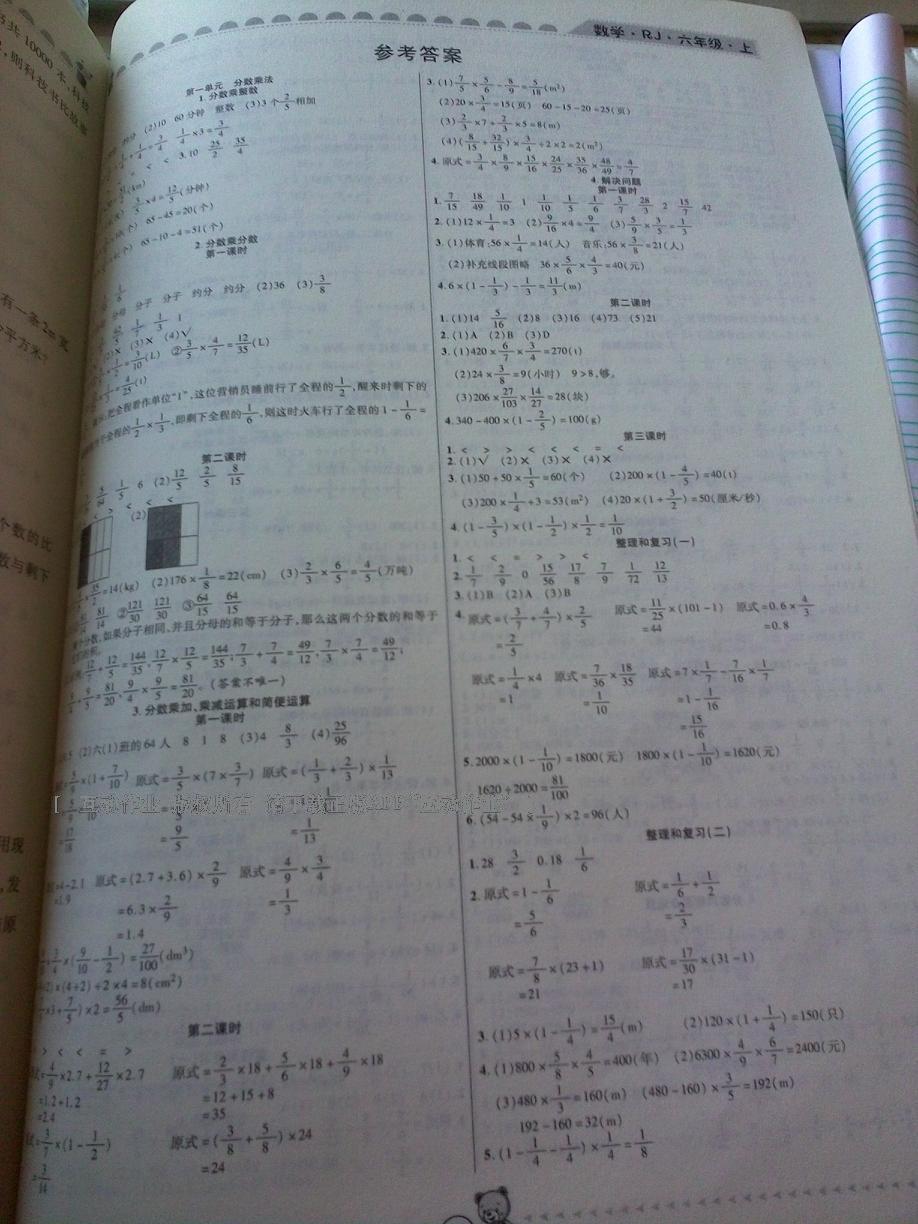 数学·RJ·六年级·上
参考答案
书共10000本,科技
则科技书比故事
有一条2m宽
平方米?
个数的比
数与剩下
用现
发
原
第一单元 分数乘法
1. 分数乘整数
(2)10 60分钟 整数 (3)3个2/5相加
1/4×3=3/4
3.10 25/2 35/4
(km)
3/5×4=12/5(分钟)
65-45=20(个)
65-10-4=51(个)
2. 分数乘分数
第一课时
分子 分子 约分 约分 (2)36 (3)3/8
1/7 1/3 1
(2)× (3)× (4)√
=3/10(L) ②3/5×4/7=12/35(L)
=4/25(t)
把全程看作单位“1”,这位营销员睡前行了全程的1/2,醒来时剩下的
全程的1/2×1/3,即剩下全程的1/6,则这时火车行了全程的1-1/6=
第二课时
1/5 6 (2)12/5 2/5 8/15
(2)
=14(kg) (2)176×1/8=22(cm) (3)2/3×6/5=4/5(万吨)
81/14 81/14 ②121/30 121/30 ③64/15 64/15
个分数,如果分子相同,并且分母的和等于分子,那么这两个分数的和等于
12/7+12/5=144/35,12/7×12/5=144/35;7/3+7/4=49/12,7/3×7/4=49/12;
9/4+9/5=81/20,9/4×9/5=81/20。(答案不唯一)
3. 分数乘加、乘减运算和简便运算
第一课时
(2)六(1)班的64人 8 1 8 (3)4 8/3 (4)25/96
=5/9×(1+7/10) 原式=3/5×(7×3/7) 原式=(1/3+2/3)×1/13
[ 互动作业 版权所有
=17/18 =9/5 =1/13
=4-2.1 原式=(2.7+3.6)×2/9 原式=4/9×3/4
=1.9 =6.3×2/9 =1/3
=1.4
×(9/10-1/2)=27/100(dm³)
×(4+2)÷2×4=8(cm²)
×3+7/5)×2=56/5(dm)
第二课时
> < < = >
=4/9×2.7+12/27×2.7 原式=2/3×18+5/6×18+4/9×18
=1.2+1.2 =12+15+8
=2.4 =35
=3/7×(1-1/2) 原式=(3/8+5/8)×24
=3/14 =24
3.(1)7/5×5/6-8/9=5/18(m²)
(2)20×3/4=15(页) 60-15-20=25(页)
(3)2/3×7+2/3×5=8(m)
(4)(8/15+32/15)×3/4÷2×2=2(m²)
4.原式=3/4×8/9×15/16×24/25×35/36×48/49=4/7
4. 解决问题
第一课时
1.7/15 18/49 1/10 1 1/10 1/5 1/6 3/7 28/3 2 15/7 42
2.(1)12×1/4=3 (2)9/16×4=9/4 (3)5/9×3/5=1/3
3.(1)体育:56×1/4=14(人) 音乐:56×3/8=21(人)
(2)补充线段图略 36×5/6×4/3=40(元)
4.6×(1-1/3)-1/3=11/3(m)
第二课时
1.(1)14 5/16 (2)8 (3)16 (4)73 (5)21
2.(1)A (2)B (3)D
3.(1)420×6/7×3/4=270(t)
(2)24×3/8=9(小时) 9>8,够。
(3)206×27/103×14/27=28(块)
4.340-400×(1-2/5)=100(g)
第三课时
1.< > > < < < = <
2.(1)√ (2)× (3)× (4)×
3.(1)50+50×1/5=60(个) (2)200×(1-4/5)=40(t)
(3)200×1/4+3=53(m²) (4)20×(1+3/2)=50(厘米/秒)
4.(1-3/5)×(1-1/2)×1/2=1/10
整理和复习(一)
1.< < = > > <
2.1/7 2/9 0 15/56 17/8 7/9 1/72 12/13
3.(1)B (2)A (3)B
4.原式=(3/7+4/7)×2/5 原式=11/25×(101-1) 原式=0.6×4/3
=2/5 =44 =0.8
原式=1/4×4 原式=7/36×18/35 原式=7×1/7-7/16×1/7
=1 =1/10 =1-1/16
=15/16
5.2000×(1-1/10)=1800(元) 1800×(1-1/10)=1620(元)
1620÷2000=81/100
6.(54-54×1/9)×2=96(人)
整理和复习(二)
1.28 3/2 0.18 1/6
2.原式=1-1/6 原式=1/6+1/2
=5/6 =2/3
原式=7/8×(23+1) 原式=17/30×(31-1)
=21 =17
3.(1)5×(1-1/4)=15/4(m) (2)120×(1+1/4)=150(只)
4.(1)800×5/8×4/5=400(年) (2)6300×4/9×6/7=2400(元)
(3)480×1/3=160(m) (480-160)×3/5=192(m)
192-160=32(m)
5.(1-1/4-1/4)×1/4=1/8